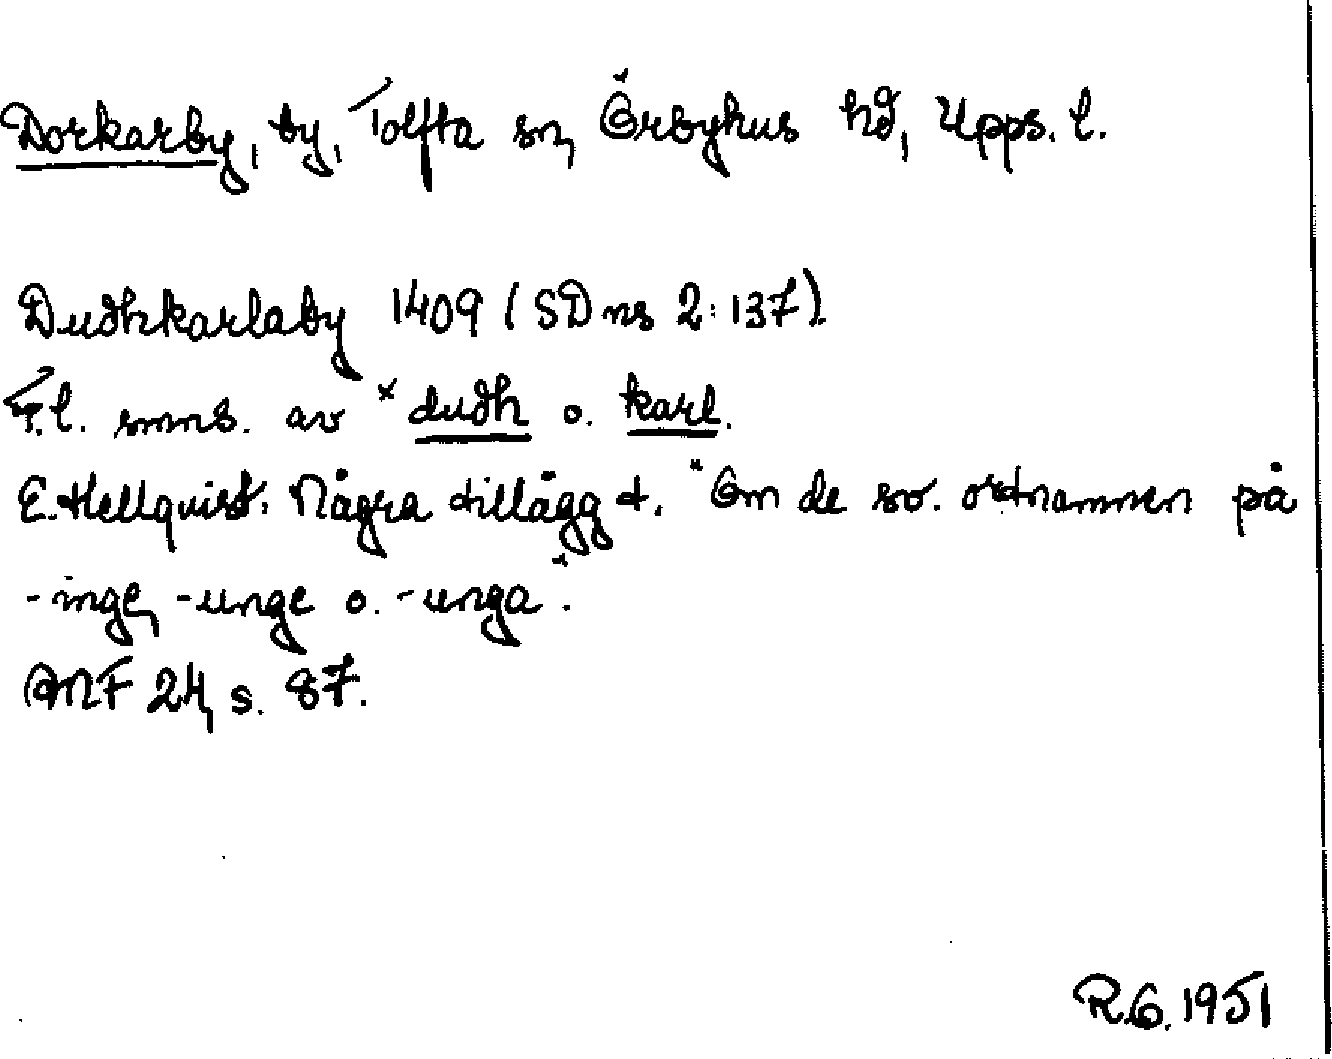 Dorkarby, by, Tolfta sn, Örbyhus hd, Upps. l.
Dudhkarlaby 1409 (SD ns 2:137).
F.l. smns. av *dudh o. karl.
E. Hellquist. Några tillägg t. "Om de sv. ortnamnen på
-inge, -unge o. -unga".
ANF 24, s. 87.
R.G. 1951